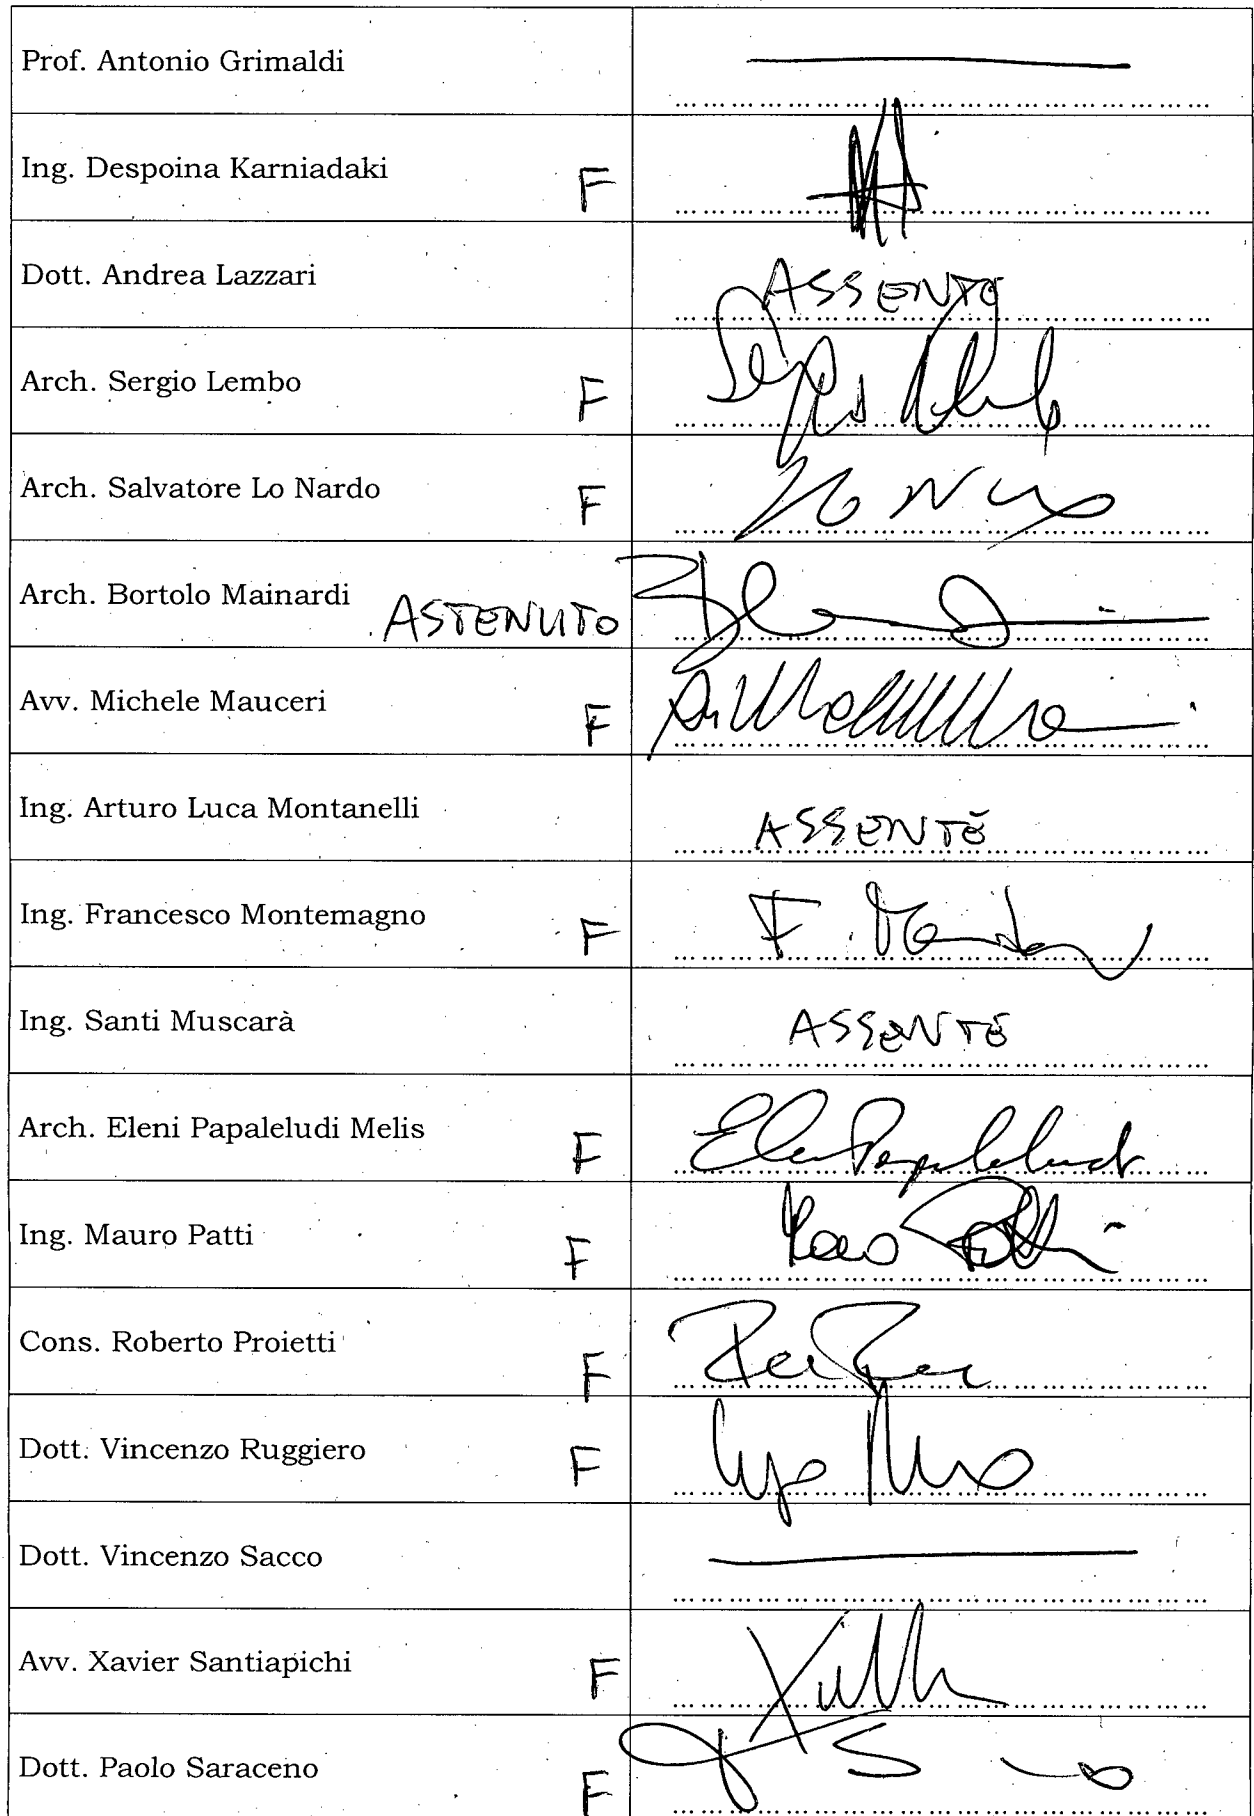 Prof. Antonio Grimaldi
Ing. Despoina Karniadaki F
Dott. Andrea Lazzari ASSENTE
Arch. Sergio Lembo F
Arch. Salvatore Lo Nardo F
Arch. Bortolo Mainardi ASTENUTO
Avv. Michele Mauceri F
Ing. Arturo Luca Montanelli ASSENTE
Ing. Francesco Montemagno F
Ing. Santi Muscarà ASSENTE
Arch. Eleni Papaleludi Melis F
Ing. Mauro Patti F
Cons. Roberto Proietti F
Dott. Vincenzo Ruggiero F
Dott. Vincenzo Sacco
Avv. Xavier Santiapichi F
Dott. Paolo Saraceno F